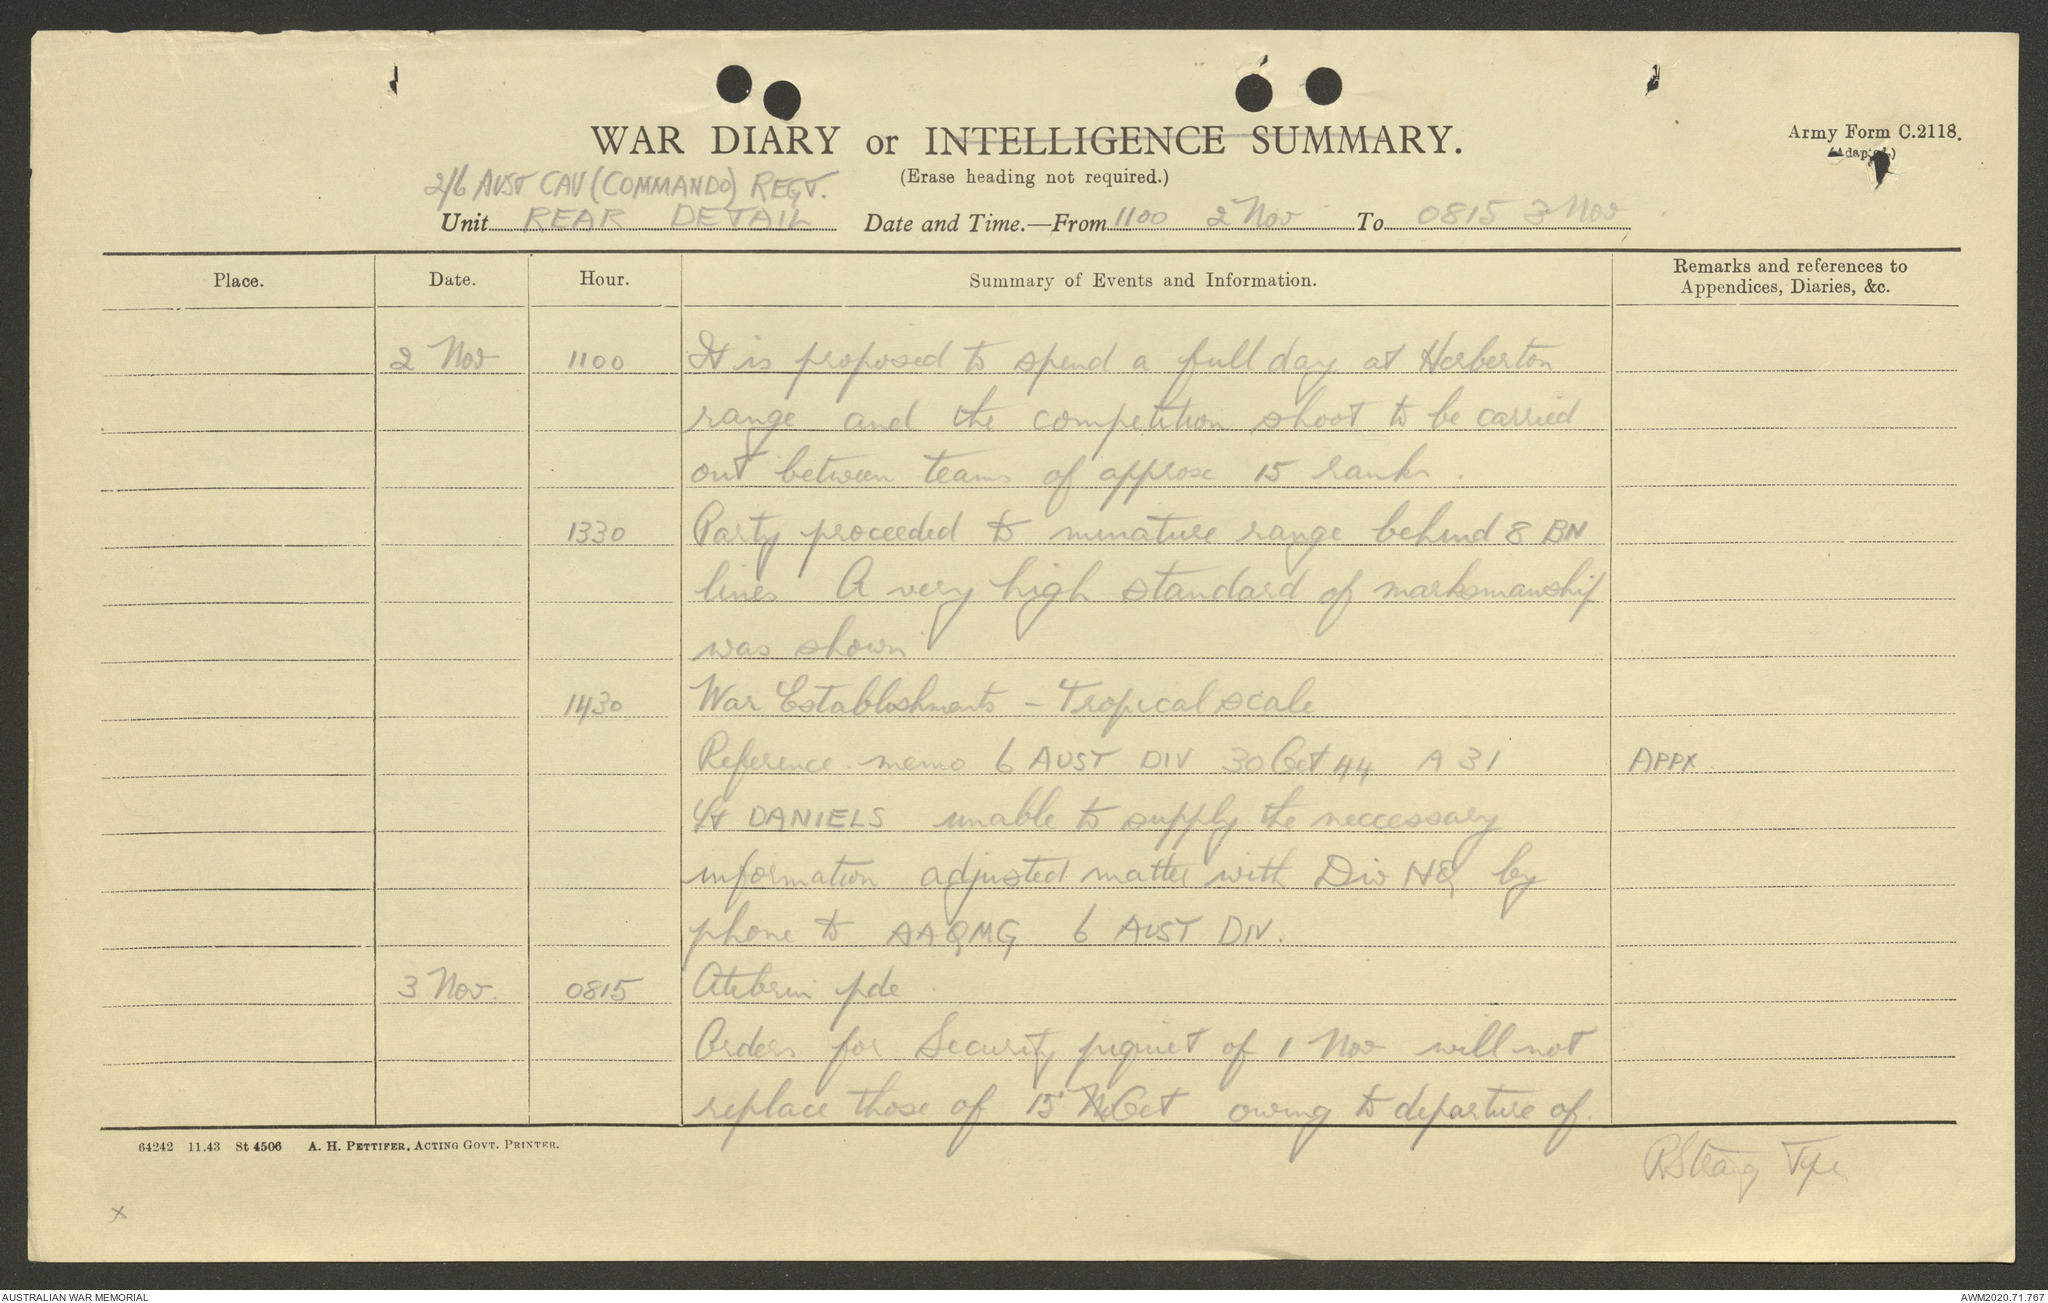 WAR DIARY or INTELLIGENCE SUMMARY.
Army Form C.2118.
(Adapted)
(Erase heading not required.)
2/6 AUST CAV (COMMANDO) REGT.
Unit REAR DETAIL Date and Time.—From 1100 2 Nov To 0815 3 Nov
Place. Date. Hour. Summary of Events and Information. Remarks and references to
Appendices, Diaries, &c.
2 Nov 1100 It is proposed to spend a full day at Herberton
range and the competition shoot to be carried
out between teams of approx 15 ranks.
1330 Party proceeded to minature range behind 8 BN
lines A very high standard of marksmanship
was shown
1430 War Establishments - Tropical scale
Reference memo 6 AUST DIV 30 Oct 44 A 31 APPX
Lt DANIELS unable to supply the neccessary
information adjusted matter with Div HQ by
phone to AAQMG 6 AUST DIV.
3 Nov. 0815 Atebrin pde
Orders for Security piquet of 1 Nov will not
replace those of 15 Oct owing to departure of.
64242 11.43 St 4506 A. H. PETTIFER, ACTING GOVT. PRINTER.
x
AUSTRALIAN WAR MEMORIAL
AWM2020.71.767